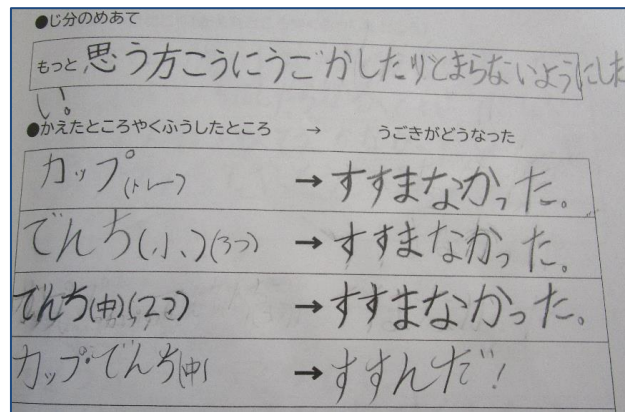 ●じ分のめあて
もっと思う方こうにうごかしたりとまらないようにした
い。
●かえたところやくふうしたところ → うごきがどうなった
カップ(トレー) → すすまなかった。
でんち(小、)(3つ) → すすまなかった。
でんち(中)(2つ) → すすまなかった。
カップ・でんち(中( → すすんだ!